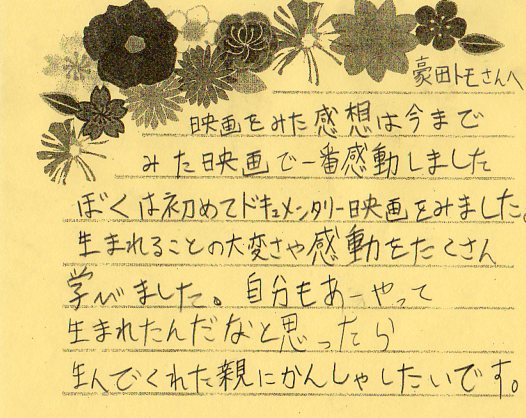 豪田トモさんへ
映画をみた感想は今まで
みた映画で一番感動しました
ぼくは初めてドキュメンタリー映画をみました。
生まれることの大変さや感動をたくさん
学びました。自分もあーやって
生まれたんだなと思ったら
生んでくれた親にかんしゃしたいです。